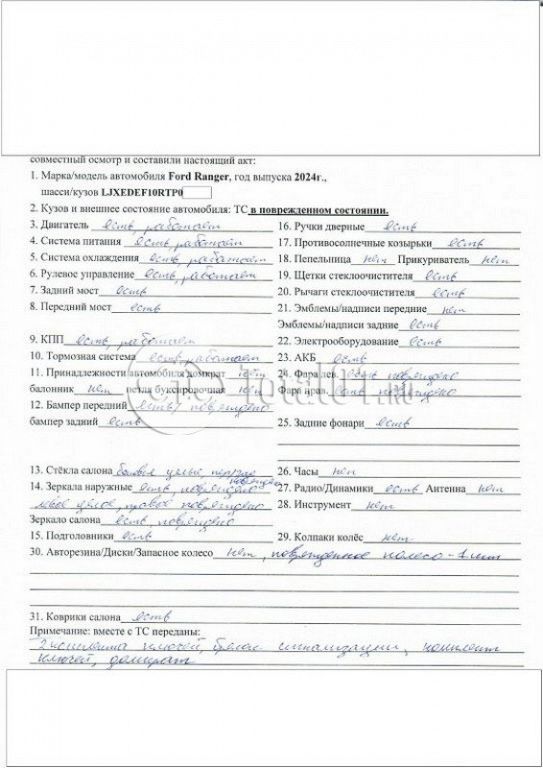 совместный осмотр и составили настоящий акт:
1. Марка/модель автомобиля Ford Ranger, год выпуска 2024г.,
шасси/кузов LJXEDEF10RTP0
2. Кузов и внешнее состояние автомобиля: ТС в поврежденном состоянии.
3. Двигатель есть, работает
4. Система питания есть, работает
5. Система охлаждения есть, работает
6. Рулевое управление есть, работает
7. Задний мост есть
8. Передний мост есть
9. КПП есть, работает
10. Тормозная система есть, работает
11. Принадлежности автомобиля домкрат нет
балонник нет петля буксировочная нет
12. Бампер передний есть, повреждено
бампер задний есть
13. Стёкла салона боковые целые, переднее повреждено
14. Зеркала наружные есть, повреждено
левое целое, правое повреждено
Зеркало салона есть, повреждено
15. Подголовники есть
16. Ручки дверные есть
17. Противосолнечные козырьки есть
18. Пепельница нет Прикуриватель нет
19. Щетки стеклоочистителя есть
20. Рычаги стеклоочистителя есть
21. Эмблемы/надписи передние нет
Эмблемы/надписи задние есть
22. Электрооборудование есть
23. АКБ есть
24. Фара лев. есть повреждено
Фара прав. есть повреждено
25. Задние фонари есть
26. Часы нет
27. Радио/Динамики есть Антенна нет
28. Инструмент нет
29. Колпаки колёс нет
30. Авторезина/Диски/Запасное колесо нет, поврежденное колесо - 1 шт
31. Коврики салона есть
Примечание: вместе с ТС переданы:
2 комплекта ключей, брелок сигнализации, комплект
ключей, домкрат